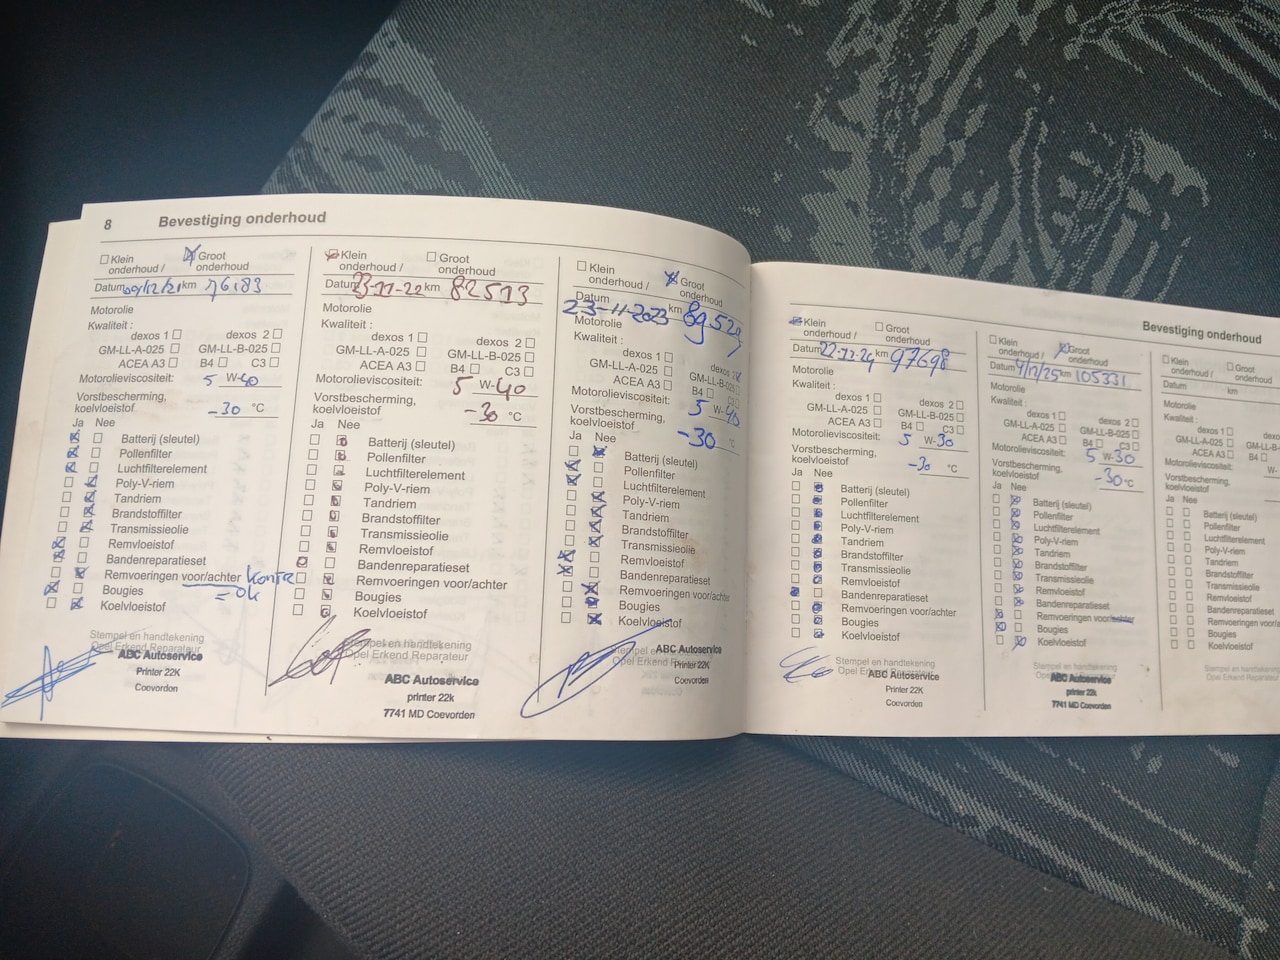 8 Bevestiging onderhoud
☐ Klein onderhoud / ☒ Groot onderhoud
Datum 09/12/21 km 76183
Motorolie
Kwaliteit :
dexos 1 ☐ dexos 2 ☐
GM-LL-A-025 ☐ GM-LL-B-025 ☐
ACEA A3 ☐ B4 ☐ C3 ☐
Motorolieviscositeit: 5 W-40
Vorstbescherming,
koelvloeistof -30 °C
Ja Nee
Batterij (sleutel)
Pollenfilter
Luchtfilterelement
Poly-V-riem
Tandriem
Brandstoffilter
Transmissieolie
Remvloeistof
Bandenreparatieset
Remvoeringen voor/achter
= ok
Bougies
Koelvloeistof
Stempel en handtekening
ABC Autoservice
Printer 22K
Coevorden
☒ Klein onderhoud / ☐ Groot onderhoud
Datum 23-11-22 km 82513
Motorolie
Kwaliteit :
dexos 1 ☐ dexos 2 ☐
GM-LL-A-025 ☐ GM-LL-B-025 ☐
ACEA A3 ☐ B4 ☐ C3 ☐
Motorolieviscositeit: 5 W-40
Vorstbescherming,
koelvloeistof -30 °C
Ja Nee
Batterij (sleutel)
Pollenfilter
Luchtfilterelement
Poly-V-riem
Tandriem
Brandstoffilter
Transmissieolie
Remvloeistof
Bandenreparatieset
Remvoeringen voor/achter
Bougies
Koelvloeistof
Stempel en handtekening
Opel Erkend Reparateur
ABC Autoservice
printer 22k
7741 MD Coevorden
☐ Klein onderhoud / ☒ Groot onderhoud
Datum 23-11-2023 km
Motorolie
Kwaliteit :
dexos 1 ☐ dexos
GM-LL-A-025 ☐ GM-LL-B-025
ACEA A3 ☐ B4 ☐ C3
Motorolieviscositeit: 5 W-40
Vorstbescherming,
koelvloeistof -30 °C
Ja Nee
Batterij (sleutel)
Pollenfilter
Luchtfilterelement
Poly-V-riem
Tandriem
Brandstoffilter
Transmissieolie
Remvloeistof
Bandenreparatieset
Remvoeringen voor/achter
Bougies
Koelvloeistof
Stempel en
Opel Erkend
ABC Autoservice
Printer 22K
Coevorden
Bevestiging onderhoud
☒ Klein onderhoud / ☐ Groot onderhoud
Datum 22-12-24 km 97698
Motorolie
Kwaliteit :
dexos 1 ☐ dexos 2 ☐
GM-LL-A-025 ☐ GM-LL-B-025 ☐
ACEA A3 ☐ B4 ☐ C3 ☐
Motorolieviscositeit: 5 W-30
Vorstbescherming,
koelvloeistof -30 °C
Ja Nee
Batterij (sleutel)
Pollenfilter
Luchtfilterelement
Poly-V-riem
Tandriem
Brandstoffilter
Transmissieolie
Remvloeistof
Bandenreparatieset
Remvoeringen voor/achter
Bougies
Koelvloeistof
Stempel en handtekening
ABC Autoservice
Printer 22K
Coevorden
☐ Klein onderhoud / ☒ Groot onderhoud
Datum 4/12/25 km 105331
Motorolie
Kwaliteit :
dexos 1 ☐ dexos 2 ☐
GM-LL-A-025 ☐ GM-LL-B-025 ☐
ACEA A3 ☐ B4 ☐ C3 ☐
Motorolieviscositeit: 5 W-30
Vorstbescherming,
koelvloeistof -30 °C
Ja Nee
Batterij (sleutel)
Pollenfilter
Luchtfilterelement
Poly-V-riem
Tandriem
Brandstoffilter
Transmissieolie
Remvloeistof
Bandenreparatieset
Remvoeringen voor/achter
Bougies
Koelvloeistof
Stempel en handtekening
ABC Autoservice
printer 22k
7741 MD Coevorden
☐ Klein onderhoud / ☐ Groot onderhoud
Datum km
Motorolie
Kwaliteit :
dexos 1 ☐
GM-LL-A-025 ☐ GM-LL-B
ACEA A3 ☐ B4 ☐
Motorolieviscositeit:
Vorstbescherming,
koelvloeistof
Ja Nee
Batterij (sleutel)
Pollenfilter
Luchtfilterelement
Poly-V-riem
Tandriem
Brandstoffilter
Transmissieolie
Remvloeistof
Bandenreparatieset
Remvoeringen voor/a
Bougies
Koelvloeistof
Stempel en handtekening
Opel Erkend Reparateur